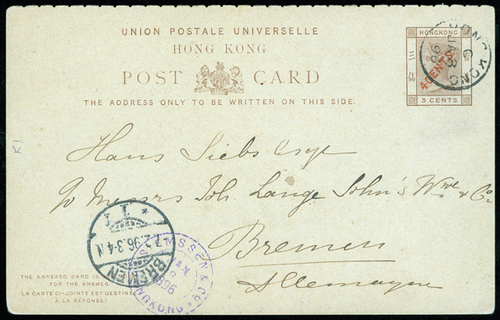 UNION POSTALE UNIVERSELLE
HONG KONG
POST CARD
THE ADDRESS ONLY TO BE WRITTEN ON THIS SIDE.
HONGKONG
4 CENTS
3 CENTS
HONG KONG
G
JA 3
96
Hans Siebs Esqre
To Messrs Joh. Lange Sohn's Wwe & Co.
Bremen
Allemagne
7.2.96.3-4 N
BREMEN
SIEMSSEN & CO
1896
HONGKONG
THE ANNEXED CARD IS
FOR THE ANSWER
LA CARTE CI-JOINTE EST DESTINÉE
À LA RÉPONSE)